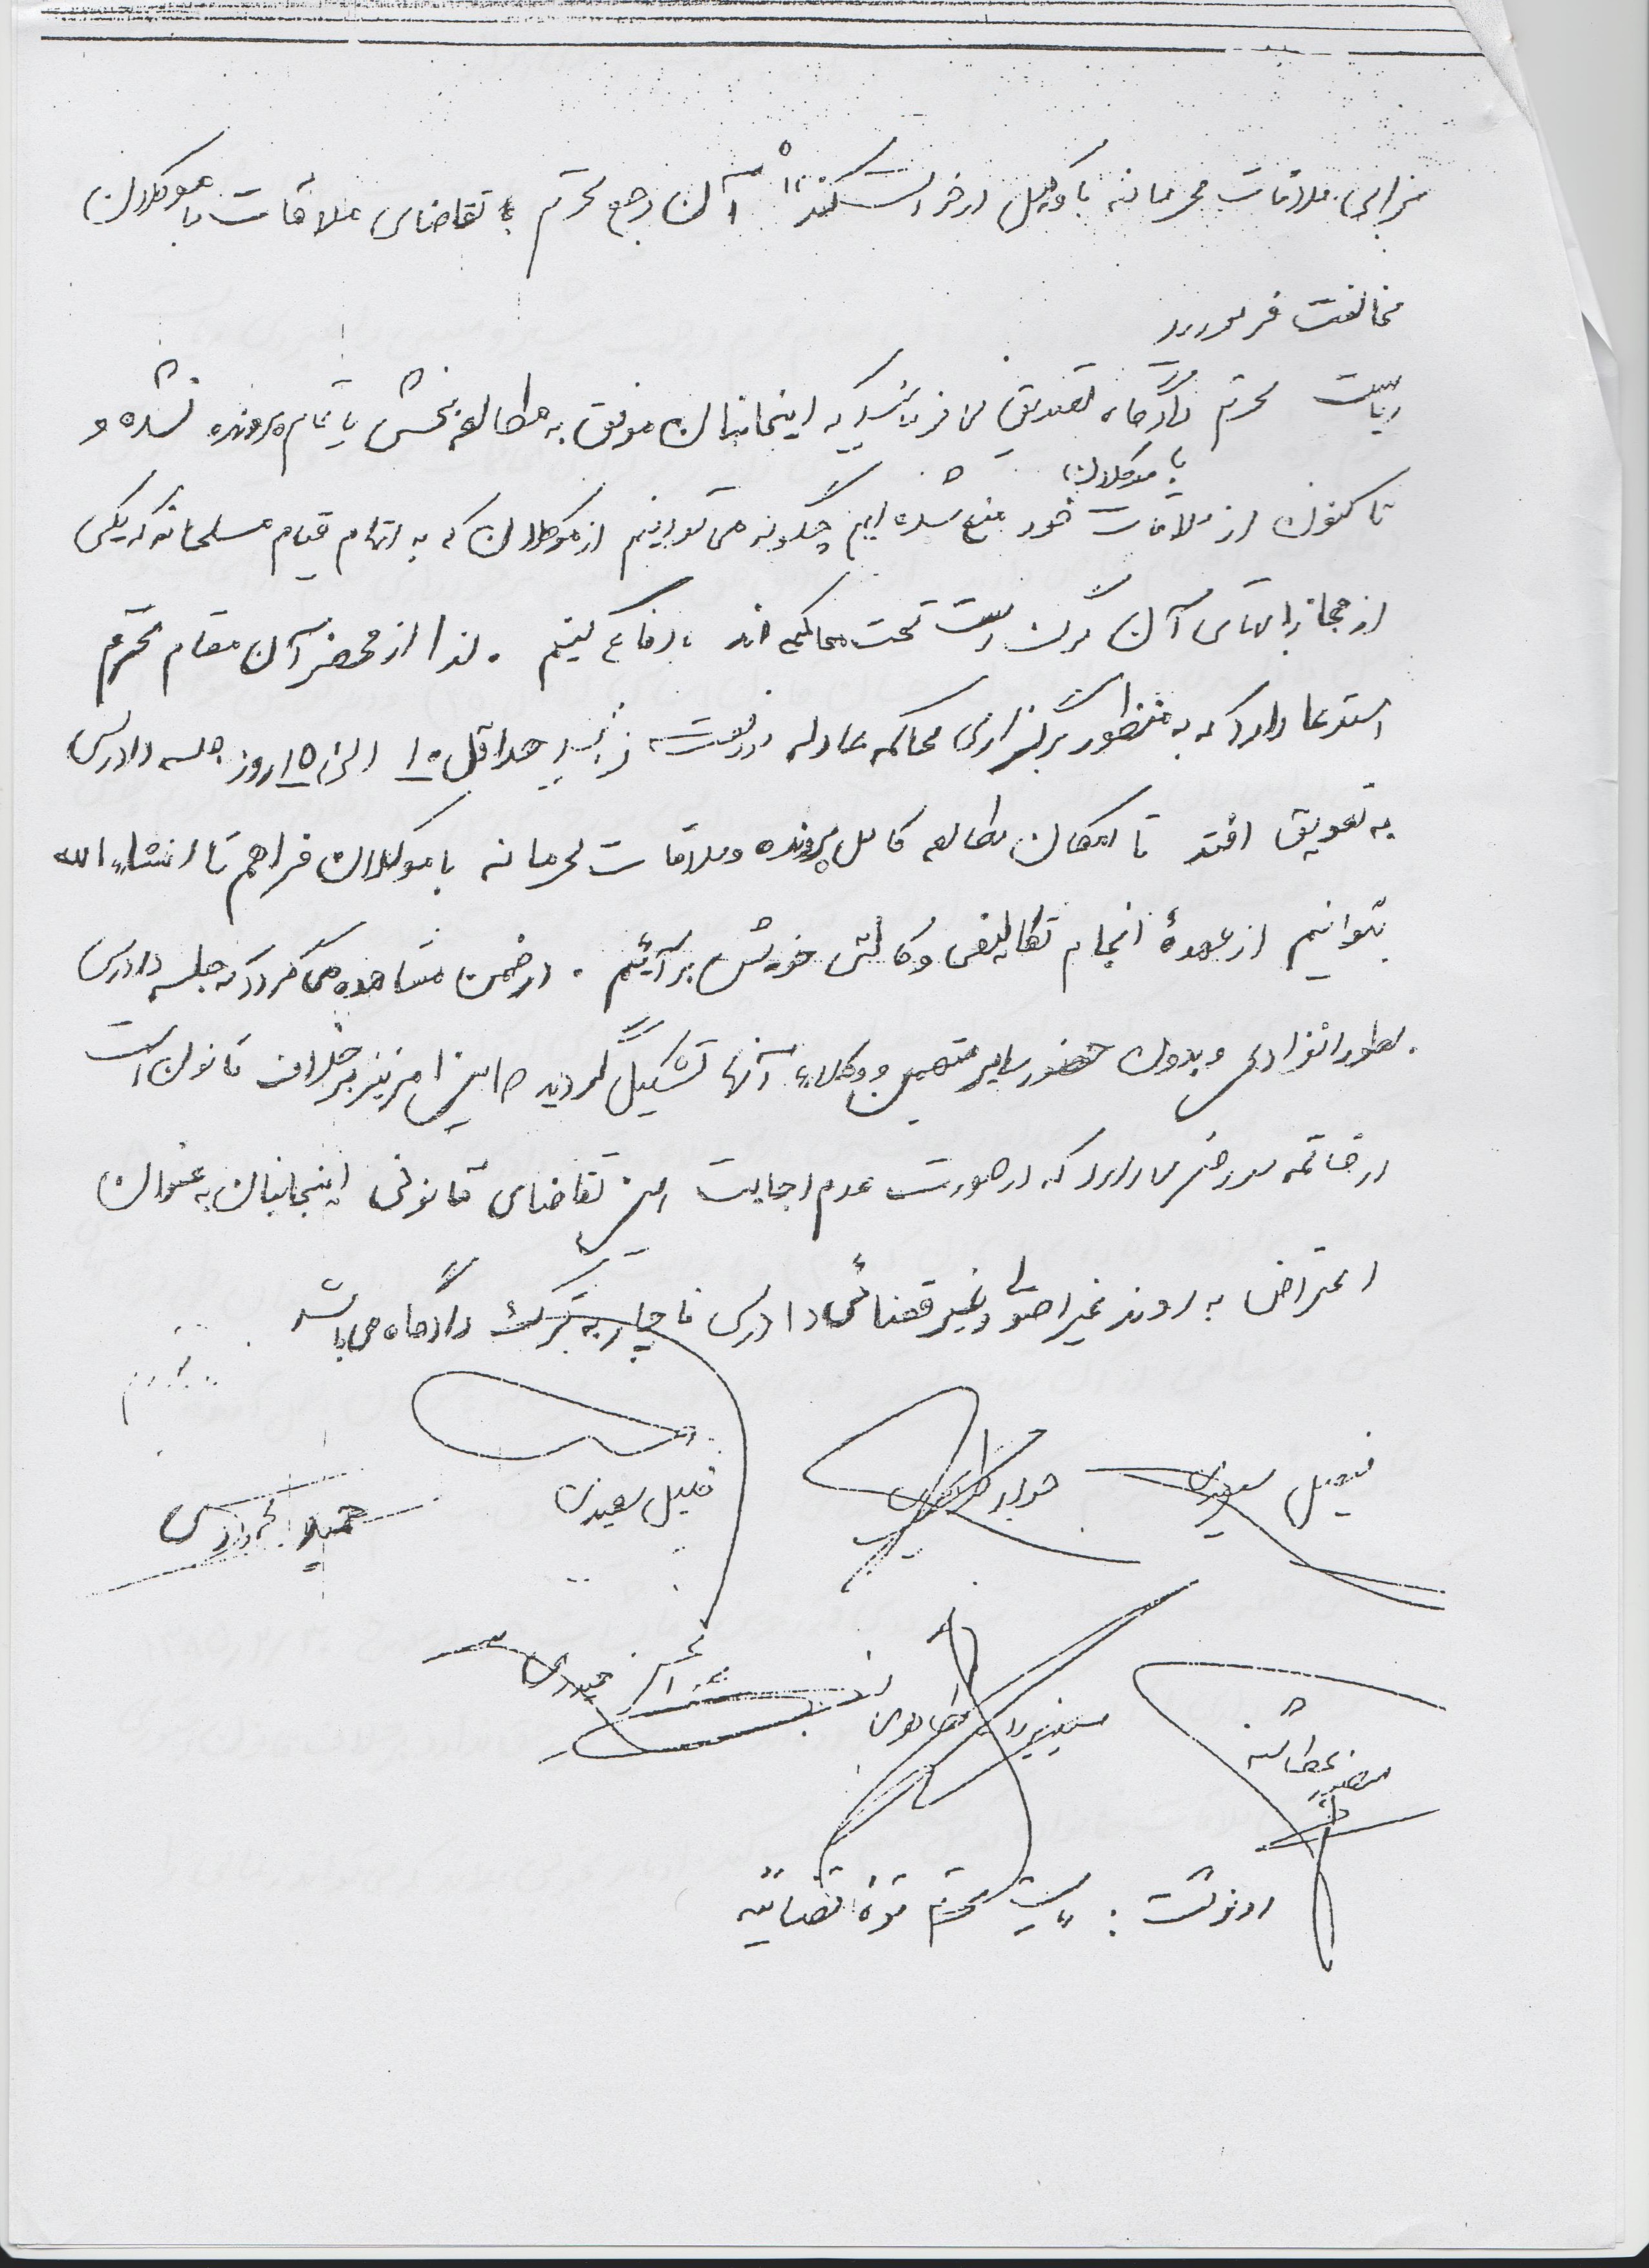 برای ملاقات محرمانه با وکیل درخواست کند" آن مرجع محترم با تقاضای ملاقات با موکلان
مخالفت فرمودند
ریاست محترم دادگاه تصدیق می فرمائید که اینجانبان موفق به مطالعه بخش یا تمام پرونده نشده و
با موکلان
تاکنون از ملاقات خود منع شده ایم چگونه می توانیم از موکلان که به اتهام قیام مسلحانه که یکی
از مجازاتهای آن مرگ است تحت محاکمه اند دفاع کنیم . لذا از محضر آن مقام محترم
استدعا دارد که به منظور برگزاری محاکمه عادله حداقل ۱۰ الی ۱۵ روز جلسه دادرسی
به تعویق افتد تا امکان مطالعه کامل پرونده و ملاقات محرمانه با موکلان فراهم تا انشاء الله
بتوانیم از عهدهٔ انجام تکالیف وکالتی خویش برآئیم . در ضمن مشاهده می گردد که جلسه دادرسی
بطور انفرادی و بدون حضور سایر متهمین و وکلای آنها تشکیل گردید که این امر نیز برخلاف قانون است
در خاتمه معروض می دارد که در صورت عدم اجابت این تقاضای قانونی اینجانبان به عنوان
اعتراض به روند غیر اصولی و غیر قضائی دادرسی ناچار به ترک دادگاه می باشد
فیصل سعیدی جواد خلیل سعیدی حمید
منصور عطاشنه
رونوشت : ریاست محترم قوهٔ قضائیه